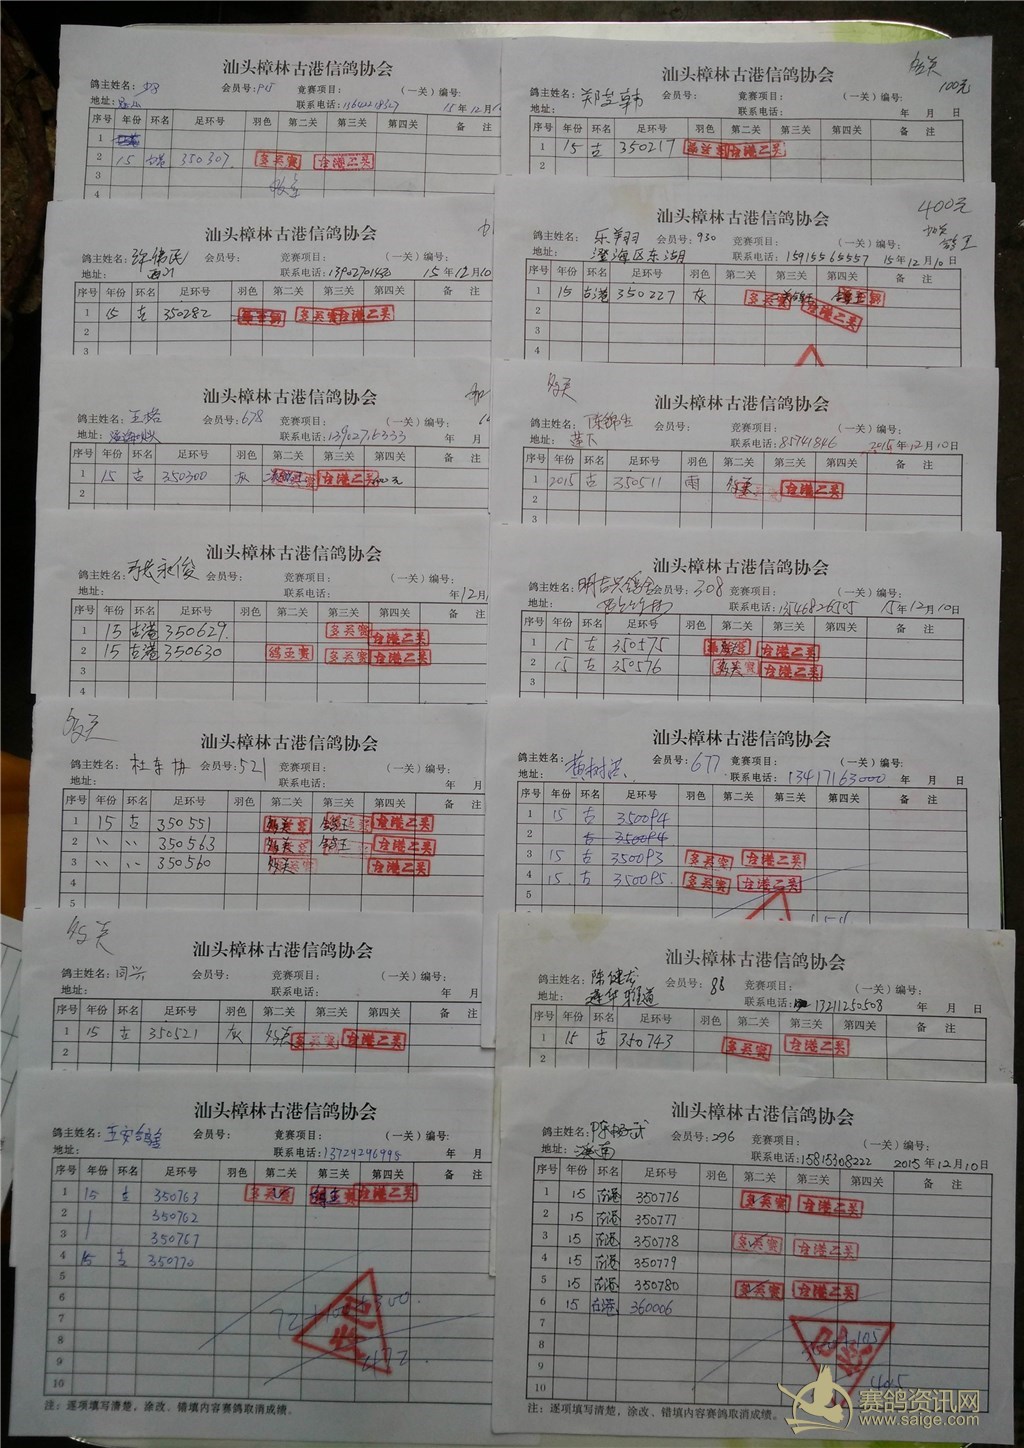 汕头樟林古港信鸽协会
鸽主姓名: 会员号: 竞赛项目: （一关）编号:
地址: 联系电话: 15年12月10
序号 年份 环名 足环号 羽色 第二关 第三关 第四关 备 注
1
2 15 350307 多关赛 古港二关
3
4
汕头樟林古港信鸽协会
鸽主姓名: 会员号: 竞赛项目: （一关）编号:
地址: 联系电话: 15年12月10
序号 年份 环名 足环号 羽色 第二关 第三关 第四关 备 注
1 15 古 350282 多关赛 古港二关
2
3
汕头樟林古港信鸽协会
鸽主姓名: 王 会员号: 678 竞赛项目: （一关）编号:
地址: 联系电话: 年 月
序号 年份 环名 足环号 羽色 第二关 第三关 第四关 备 注
1 15 古 350300 灰 古港二关
2
汕头樟林古港信鸽协会
鸽主姓名: 张永俊 会员号: 竞赛项目: （一关）编号:
地址: 联系电话: 年12月
序号 年份 环名 足环号 羽色 第二关 第三关 第四关 备 注
1 15 古港 350629 多关赛 古港二关
2 15 古港 350630 鸽王赛 多关赛 古港二关
3
多关
汕头樟林古港信鸽协会
鸽主姓名: 杜 会员号: 521 竞赛项目: （一关）编号:
地址: 联系电话: 年 月
序号 年份 环名 足环号 羽色 第二关 第三关 第四关 备 注
1 15 古 350551 多关 鸽王 古港二关
2 〃 〃 350563 多关 鸽王 古港二关
3 〃 〃 350560 多关 古港二关
4
5
多关
汕头樟林古港信鸽协会
鸽主姓名: 同兴 会员号: 竞赛项目: （一关）编号:
地址: 联系电话: 年 月
序号 年份 环名 足环号 羽色 第二关 第三关 第四关 备 注
1 15 古 350521 灰 多关 多关赛 古港二关
2
汕头樟林古港信鸽协会
鸽主姓名: 会员号: 竞赛项目: （一关）编号:
地址: 联系电话: 13729296998 年 月
序号 年份 环名 足环号 羽色 第二关 第三关 第四关 备 注
1 15 古 350763 多关赛 鸽王 古港二关
2 350762
3 350767
4 15 古 350770
5
6
7
8
9
10
注：逐项填写清楚，涂改、错填内容赛鸽取消成绩。
多关
100元
汕头樟林古港信鸽协会
鸽主姓名: 会员号: 竞赛项目: （一关）编号:
地址: 联系电话: 年 月 日
序号 年份 环名 足环号 羽色 第二关 第三关 第四关 备 注
1 15 古 350217 古港二关
2
400元
多关
鸽王
汕头樟林古港信鸽协会
鸽主姓名: 乐翔羽 会员号: 930 竞赛项目: （一关）编号:
地址: 澄海区东湖 联系电话: 15915565557 15年12月10日
序号 年份 环名 足环号 羽色 第二关 第三关 第四关 备 注
1 15 古港 350227 灰 多关赛 古港二关
2
3
4
多关
汕头樟林古港信鸽协会
鸽主姓名: 陈锦生 会员号: 竞赛项目: （一关）编号:
地址: 莲下 联系电话: 85741846 2015年12月10日
序号 年份 环名 足环号 羽色 第二关 第三关 第四关 备 注
1 2015 古 350511 雨 多关 古港二关
2
3
汕头樟林古港信鸽协会
鸽主姓名: 明古兴鸽舍 会员号: 308 竞赛项目: （一关）编号:
地址: 联系电话: 15年12月10日
序号 年份 环名 足环号 羽色 第二关 第三关 第四关 备 注
1 15 古 350575 古港二关
2 15 古 350576 多关赛 古港二关
3
4
汕头樟林古港信鸽协会
鸽主姓名: 会员号: 677 竞赛项目: （一关）编号:
地址: 联系电话: 13417163000 年 月 日
序号 年份 环名 足环号 羽色 第二关 第三关 第四关 备 注
1 15 古 350094
2 古 350094
3 15 古 350093 多关赛 古港二关
4 15 古 350095 多关赛 古港二关
5
汕头樟林古港信鸽协会
鸽主姓名: 陈健龙 会员号: 88 竞赛项目: （一关）编号:
地址: 联系电话: 13211250508 年 月 日
序号 年份 环名 足环号 羽色 第二关 第三关 第四关 备 注
1 15 古 350743 多关赛 古港二关
2
汕头樟林古港信鸽协会
鸽主姓名: 会员号: 296 竞赛项目: （一关）编号:
地址: 联系电话: 15815308222 2015年12月10日
序号 年份 环名 足环号 羽色 第二关 第三关 第四关 备 注
1 15 古港 350776 多关赛 古港二关
2 15 古港 350777
3 15 古港 350778 多关赛 古港二关
4 15 古港 350779
5 15 古港 350780 多关赛 古港二关
6 15 古港 360006
7
8
9
10
注：逐项填写清楚，涂改、错填内容赛鸽取消成绩。
赛鸽资讯网
www.saige.com